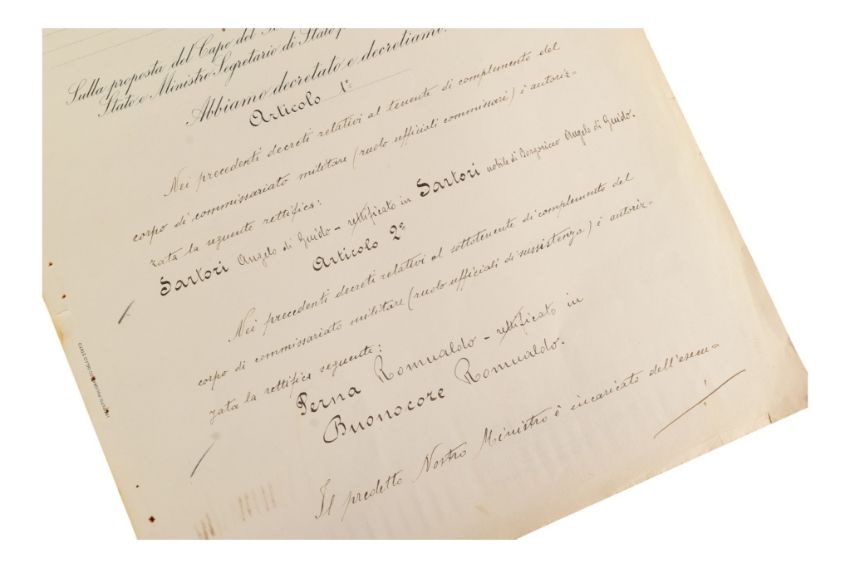 Sulla proposta del Capo del
Stato e Ministro Segretario di Stato p
Abbiamo decretato e decretiamo
Articolo 1º
Nei precedenti decreti relativi al tenente di complemento del
corpo di commissariato militare (ruolo ufficiali commissari) è autoriz-
zata la seguente rettifica:
Sartori Angelo di Guido - rettificato in Sartori nobile di Borgoricco Angelo di Guido.
Articolo 2º
Nei precedenti decreti relativi al sottotenente di complemento del
corpo di commissariato militare (ruolo ufficiali di sussistenza) è autoriz-
zata la rettifica seguente:
Perna Romualdo - rettificato in
Buonocore Romualdo.
Il predetto Nostro Ministro è incaricato dell'esecu-